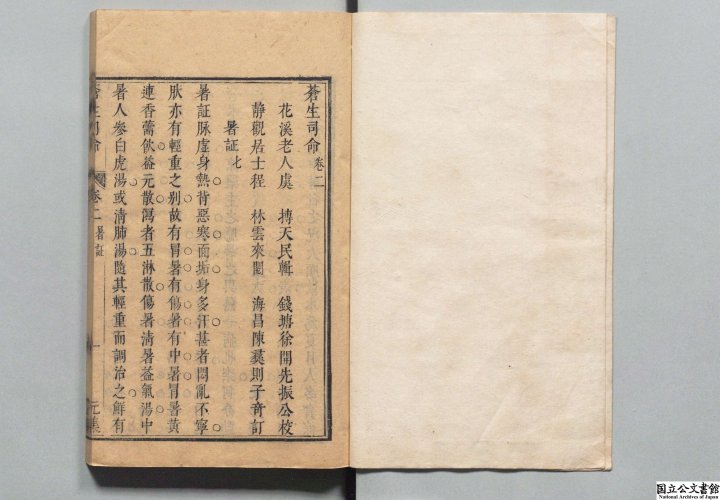 蒼生司命 卷二
花溪老人虞 摶天民輯 錢塘徐開先振公校
靜觀居士程 林雲來閱 海昌陳 則子奇訂
暑証七
暑証脉虛身熱背惡寒而垢身多汗甚者悶亂不寧
脉亦有輕重之别故有冒暑有傷暑有中暑冒暑黃
連香薷飲益元散瀉者五淋散傷暑清暑益氣湯中
暑人參白虎湯或清肺湯隨其輕重而調治之鮮有
蒼生司命 卷二 暑証 一 元集
国立公文書館
National Archives of Japan